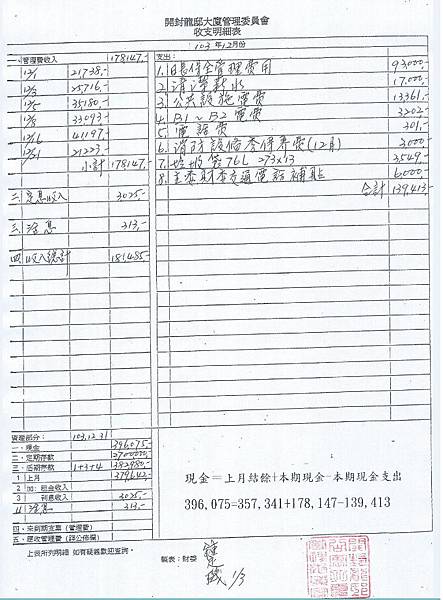 開封龍邸大廈管理委員會
收支明細表
103年12月份
一、管理費收入 178147.-
12/1 21738.-
12/3 25716.-
12/5 35180.-
12/8 33093.-
12/16 41197.-
21223.-
小計 178147.-
二. 定息收入 3025.-
三. 活息 313.-
四. 收入總計 181485.-
支出:
1. 保全管理費用 93,000.-
2. 清潔薪水 17,000.-
3. 公共設施電費 13361.-
4. B1~B2電費 3202.-
5. 電話費 301.-
6. 消防設備委保養費(12月) 3,000
7. 垃圾袋76L 273x13 3549.-
8. 主委財委交通電話補貼 6,000.-
合計 139,413.-
管理部分: 103.12.31
一、現金 396,075.-
二、定期存款 2700000.-
三、活期存款 1+3+4 382980.-
1 上月 379642.-
2 租金收入
3 利息收入 3025.-
4 活息 313.-
四、未到期支票(管理費)
五、應收管理費(詳公佈欄)
現金=上月結餘+本期現金-本期現金支出
396,075=357,341+178,147-139,413
上表所列明細 如有疑義歡迎查詢。
製表:財委
1/3